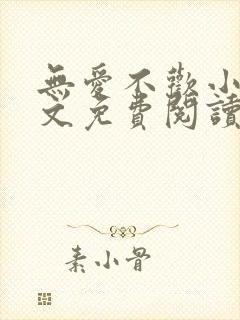 無愛不歡小
文免費閱讀
素小骨